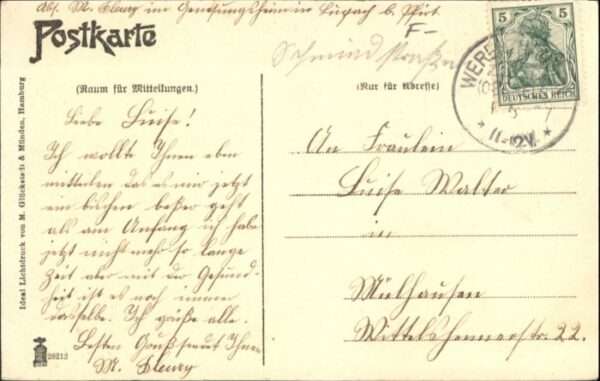 Abs. M. Fleury im Genesungsheim in Lützel b. Pfirt
Postkarte
F-
Schmiedstraße
(Raum für Mitteilungen.)
(Nur für Adresse)
5 5
DEUTSCHES REICH
WERE
11-12V.
Liebe Luise!
Ich wollte Ihnen eben
mitteilen das es mir jetzt
ein bischen beßer geht
als am Anfang ich habe
jetzt nicht mehr so lange
Zeit aber mit der Gesund-
heit ist es noch immer
dasselbe. Ich grüße alle.
Besten Gruß sendet Ihnen
M. Fleury
An Fräulein
Luise Walter
in
Mülhausen
Wittelsheimerstr. 22.
Ideal Lichtdruck von M. Glückstadt & Münden, Hamburg
28212